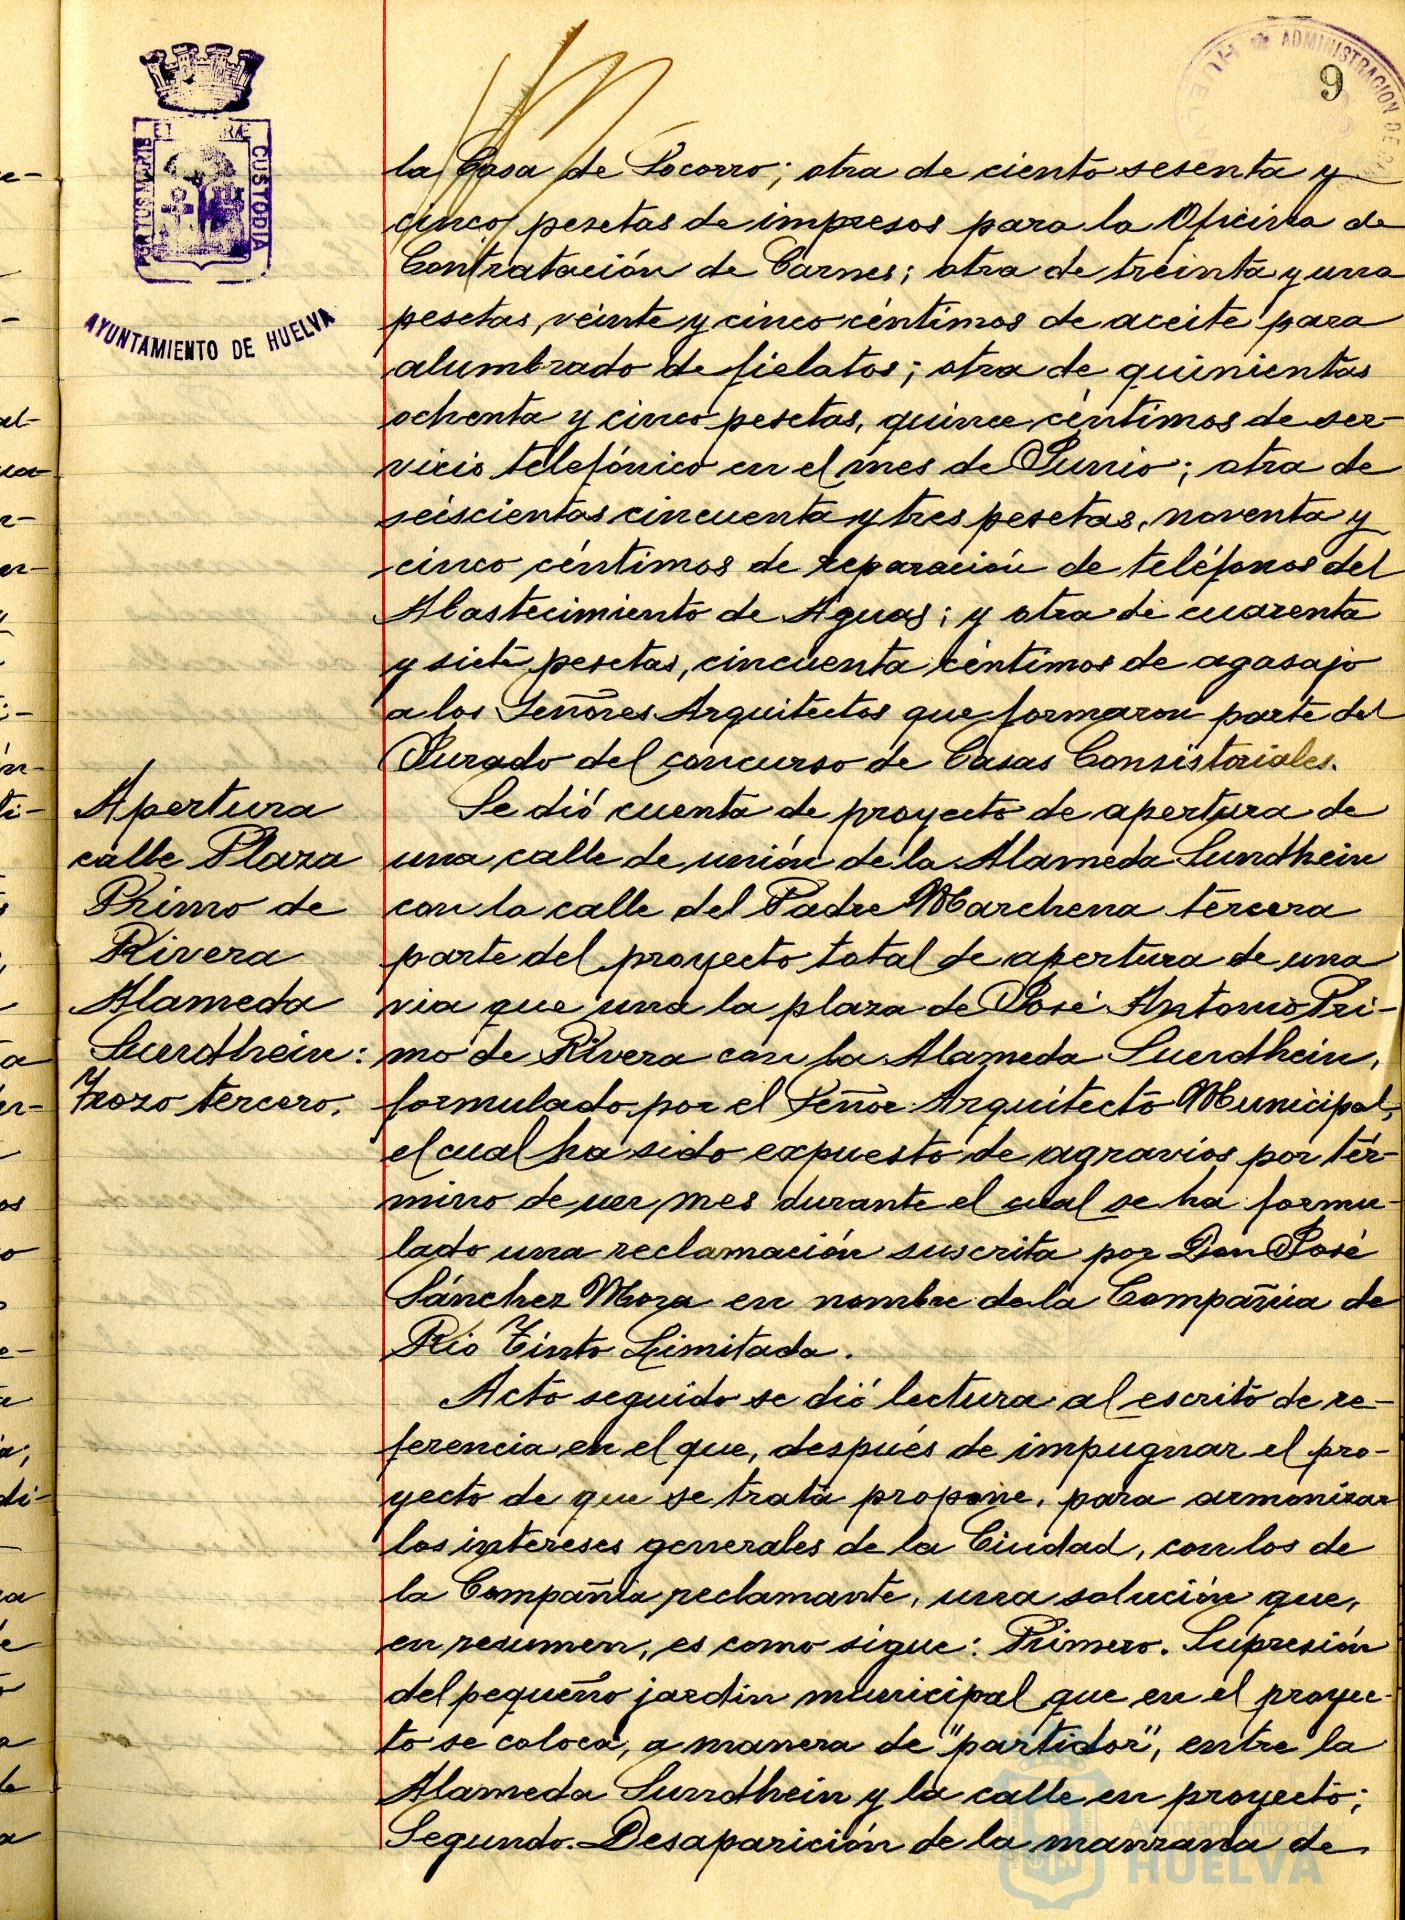 9
ADMINISTRACION DE
PORTUS MARIS
ET TERRAE
CUSTODIA
AYUNTAMIENTO DE HUELVA
la Casa de Socorro; otra de ciento sesenta y
cinco pesetas de impresos para la Oficina de
Contratación de Carnes; otra de treinta y una
pesetas, veinte y cinco céntimos de aceite para
alumbrado de fielatos; otra de quinientas
ochenta y cinco pesetas, quince céntimos de ser-
vicio telefónico en el mes de Junio; otra de
seiscientas cincuenta y tres pesetas, noventa y
cinco céntimos de reparación de teléfonos del
Abastecimiento de Aguas; y otra de cuarenta
y siete pesetas, cincuenta céntimos de agasajo
a los Señores Arquitectos que formaron parte del
Jurado del concurso de Casas Consistoriales.
Apertura
calle Plaza
Primo de
Rivera
Alameda
Sundhein:
Trozo tercero.
Se dió cuenta de proyecto de apertura de
una calle de unión de la Alameda Sundhein
con la calle del Padre Marchena tercera
parte del proyecto total de apertura de una
via que una la plaza de José Antonio Pri-
mo de Rivera con la Alameda Sundhein,
formulado por el Señor Arquitecto Municipal,
el cual ha sido expuesto de agravios por tér-
mino de un mes durante el cual se ha formu-
lado una reclamación suscrita por Don José
Sánchez Mora en nombre de la Compañia de
Rio Tinto Limitada.
Acto seguido se dió lectura al escrito de re-
ferencia en el que, después de impugnar el pro-
yecto de que se trata propone, para armonizar
los intereses generales de la Ciudad, con los de
la Compañia reclamante, una solución que,
en resumen, es como sigue: Primero. Supresión
del pequeño jardin municipal que en el proyec-
to se coloca, a manera de "partidor", entre la
Alameda Sundhein y la calle en proyecto;
Segundo. Desaparición de la manzana de
Ayuntamiento de
HUELVA